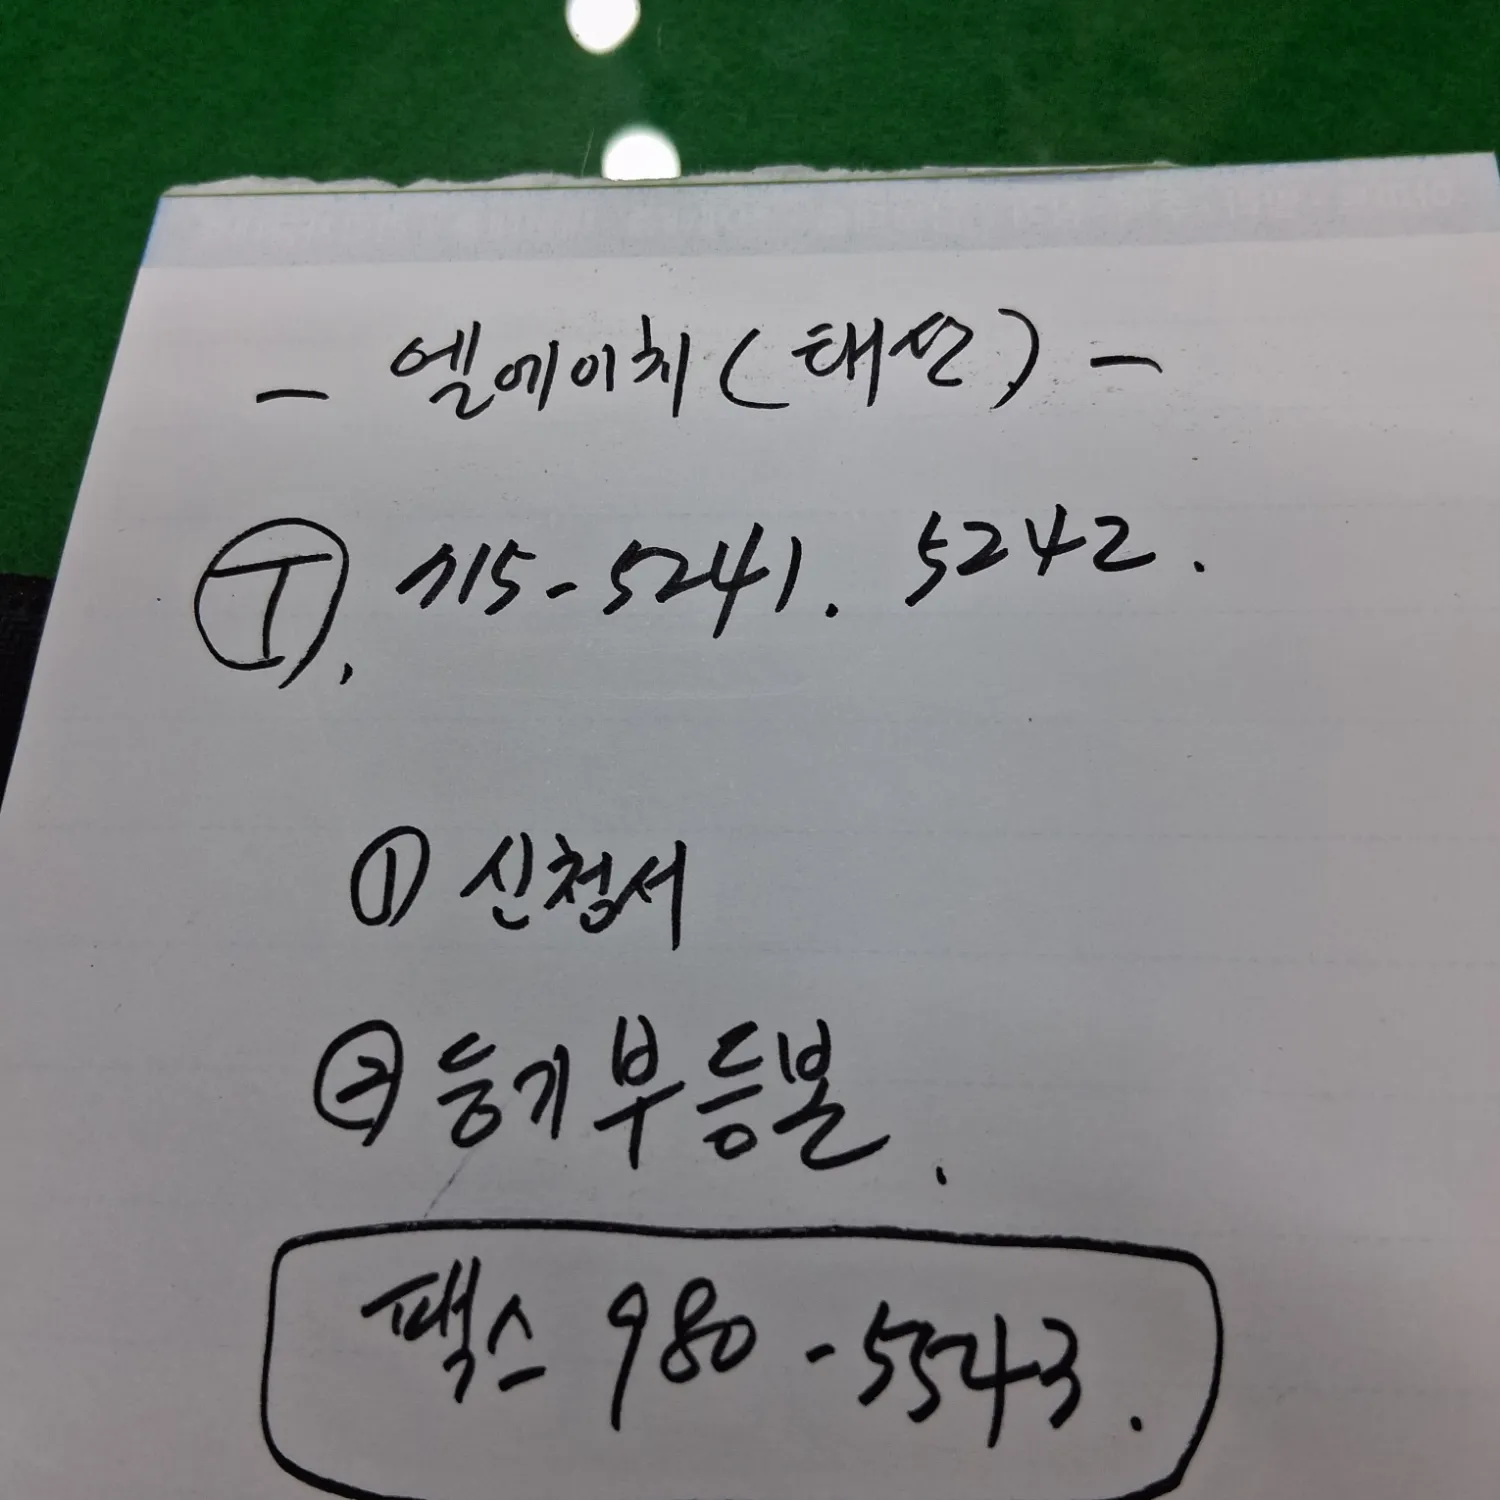 - 엘에이치(태산) -
Ⓣ. 715-5241. 5242.
① 신청서
② 등기부등본.
팩스 980-5543.